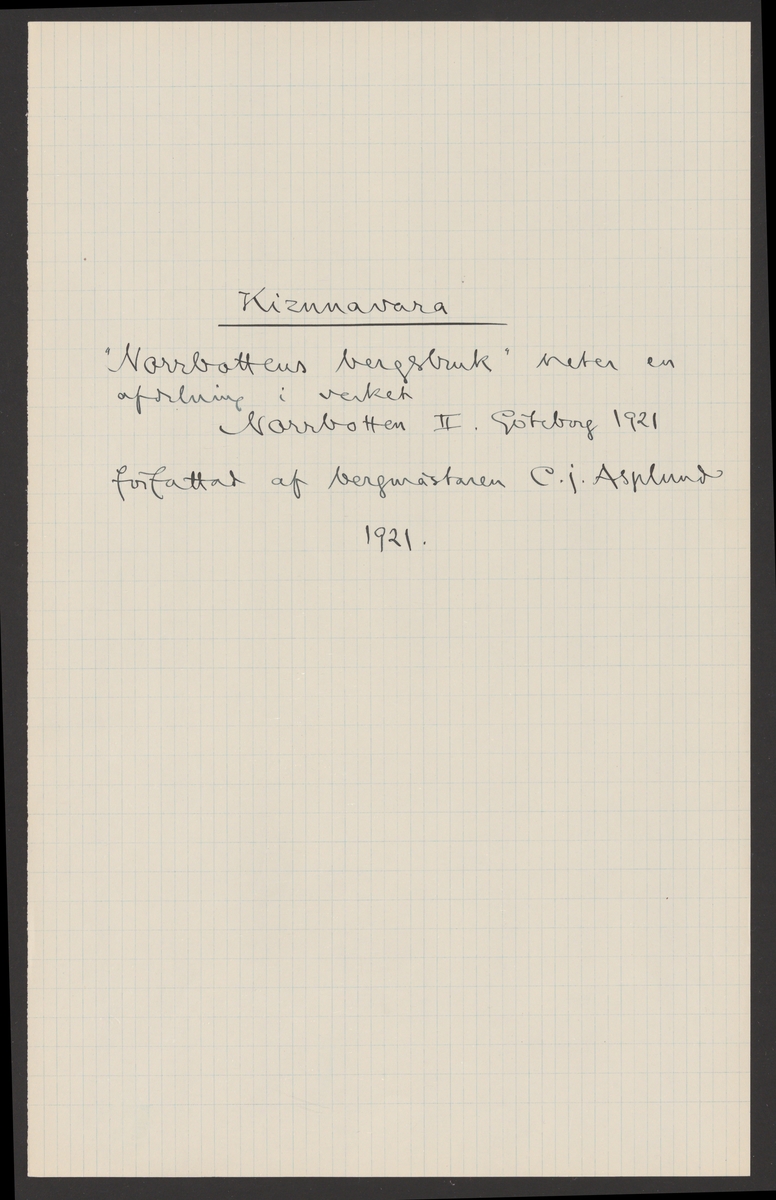 Kirunavara
"Norrbottens bergsbruk" heter en
afdelning i verket
Norrbotten II. Göteborg 1921
författad af bergmästaren C.j. Asplund
1921.